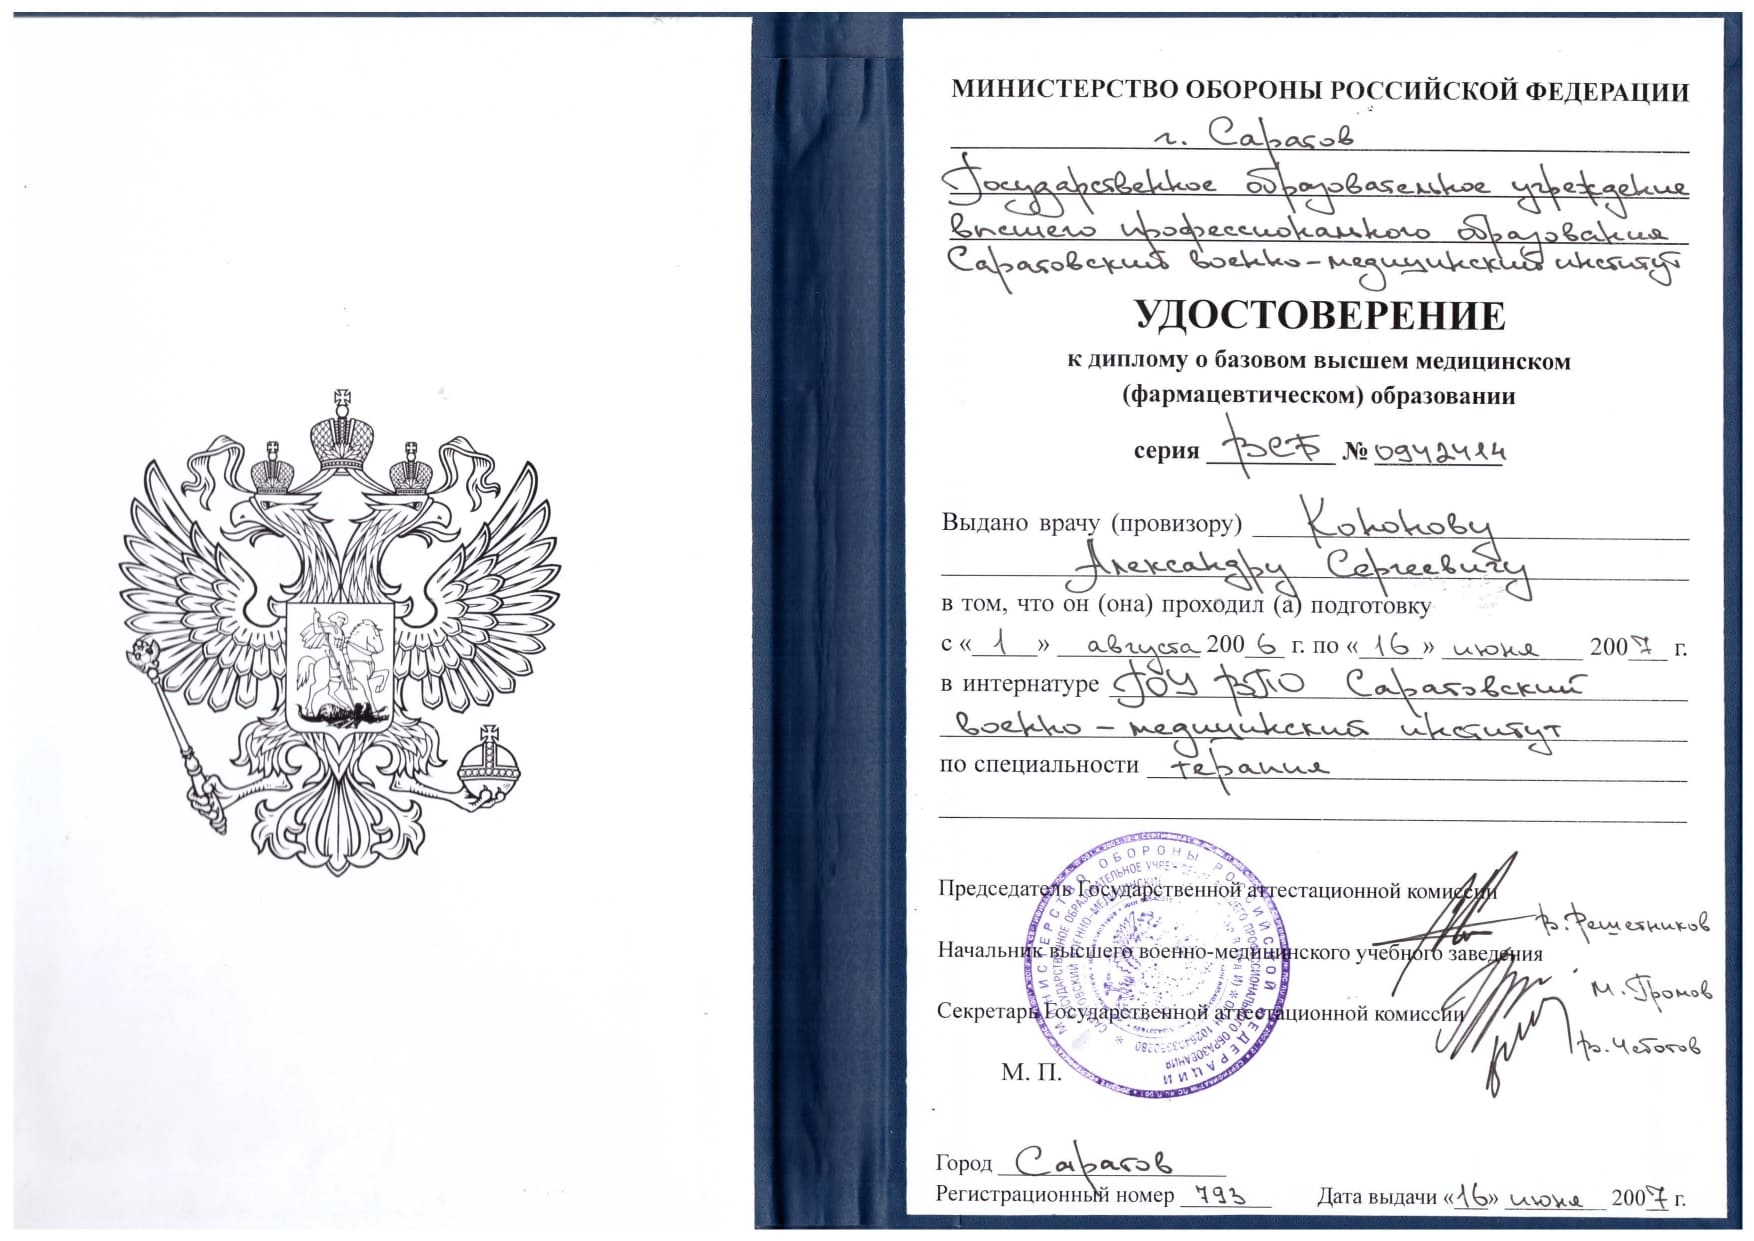 МИНИСТЕРСТВО ОБОРОНЫ РОССИЙСКОЙ ФЕДЕРАЦИИ
г. Саратов
Государственное образовательное учреждение
высшего профессионального образования
Саратовский военно-медицинский институт
УДОСТОВЕРЕНИЕ
к диплому о базовом высшем медицинском
(фармацевтическом) образовании
серия ВСБ № 0942414
Выдано врачу (провизору) Кононову
Александру Сергеевичу
в том, что он (она) проходил (а) подготовку
с «1» августа 2006 г. по «16» июня 2007 г.
в интернатуре ГОУ ВПО Саратовский
военно-медицинский институт
по специальности терапия
МИНИСТЕРСТВО ОБОРОНЫ РОССИЙСКОЙ ФЕДЕРАЦИИ
Председатель Государственной аттестационной комиссии
В. Решетников
Начальник высшего военно-медицинского учебного заведения
М. Громов
Секретарь Государственной аттестационной комиссии
В. Чеботов
М. П.
Город Саратов
Регистрационный номер 793 Дата выдачи «16» июня 2007 г.